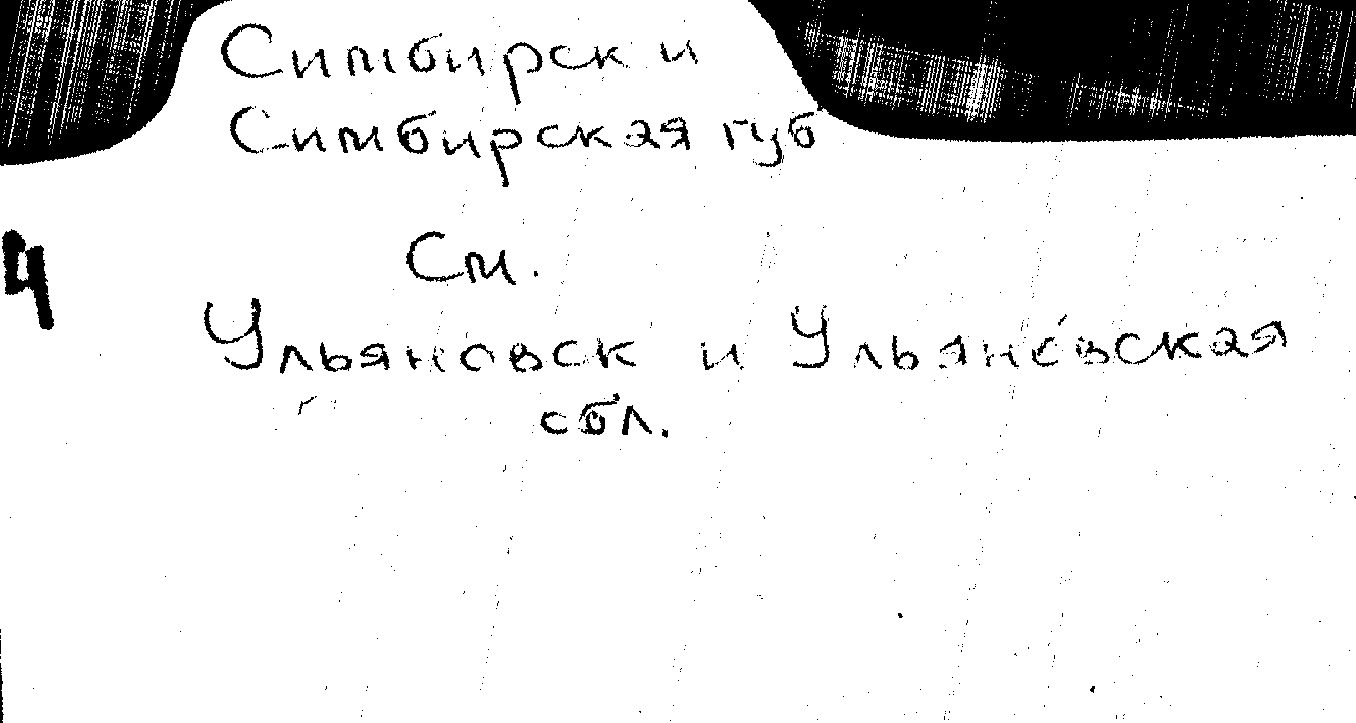 Симбирск и
Симбирская губ
См.
Ульяновск и Ульяновская
обл.